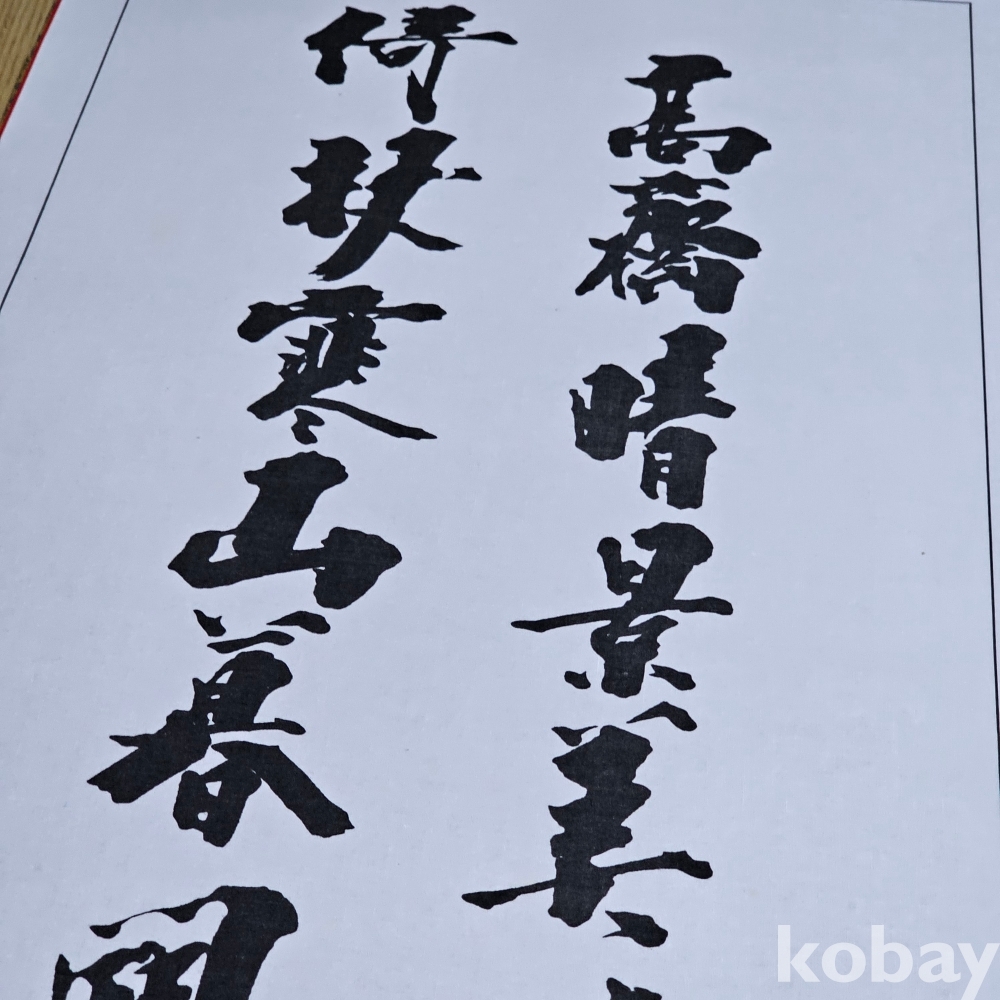 高橋晴景美
倚杖寒山暮
kobay